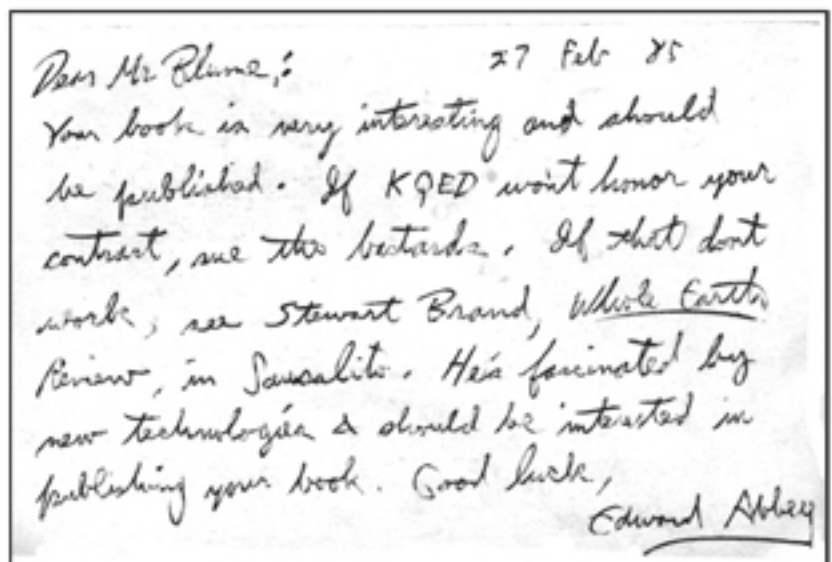 27 Feb 85
Dear Mr Blume,:
Your book is very interesting and should
be published. If KQED won't honor your
contract, sue the bastards. If that dont
work, see Stewart Brand, Whole Earth
Review, in Sausalito. He's fascinated by
new technologies & should be interested in
publishing your book. Good luck,
Edward Abbey